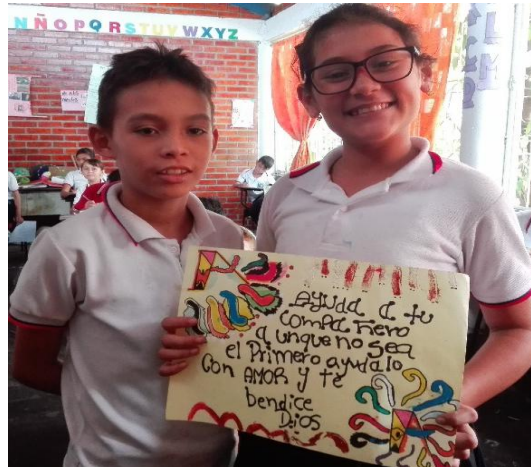 N Ñ O P Q R S T U V W X Y Z
Ayuda a tu
compañero
aunque no sea
el Primero ayudalo
Con AMOR y te
bendice
Dios